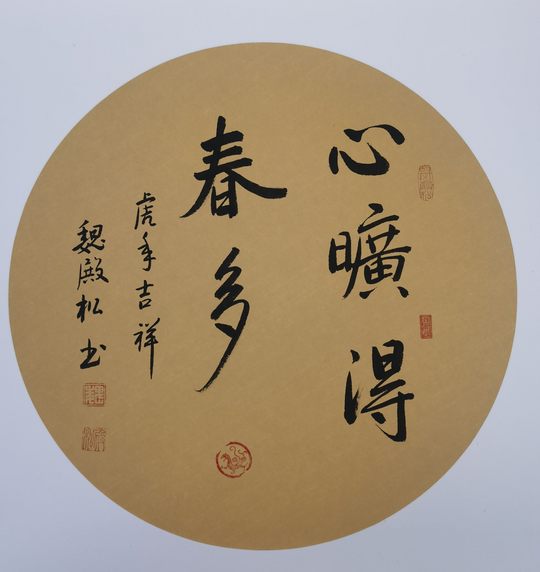 心曠得
春多
虎年吉祥
魏殿松书